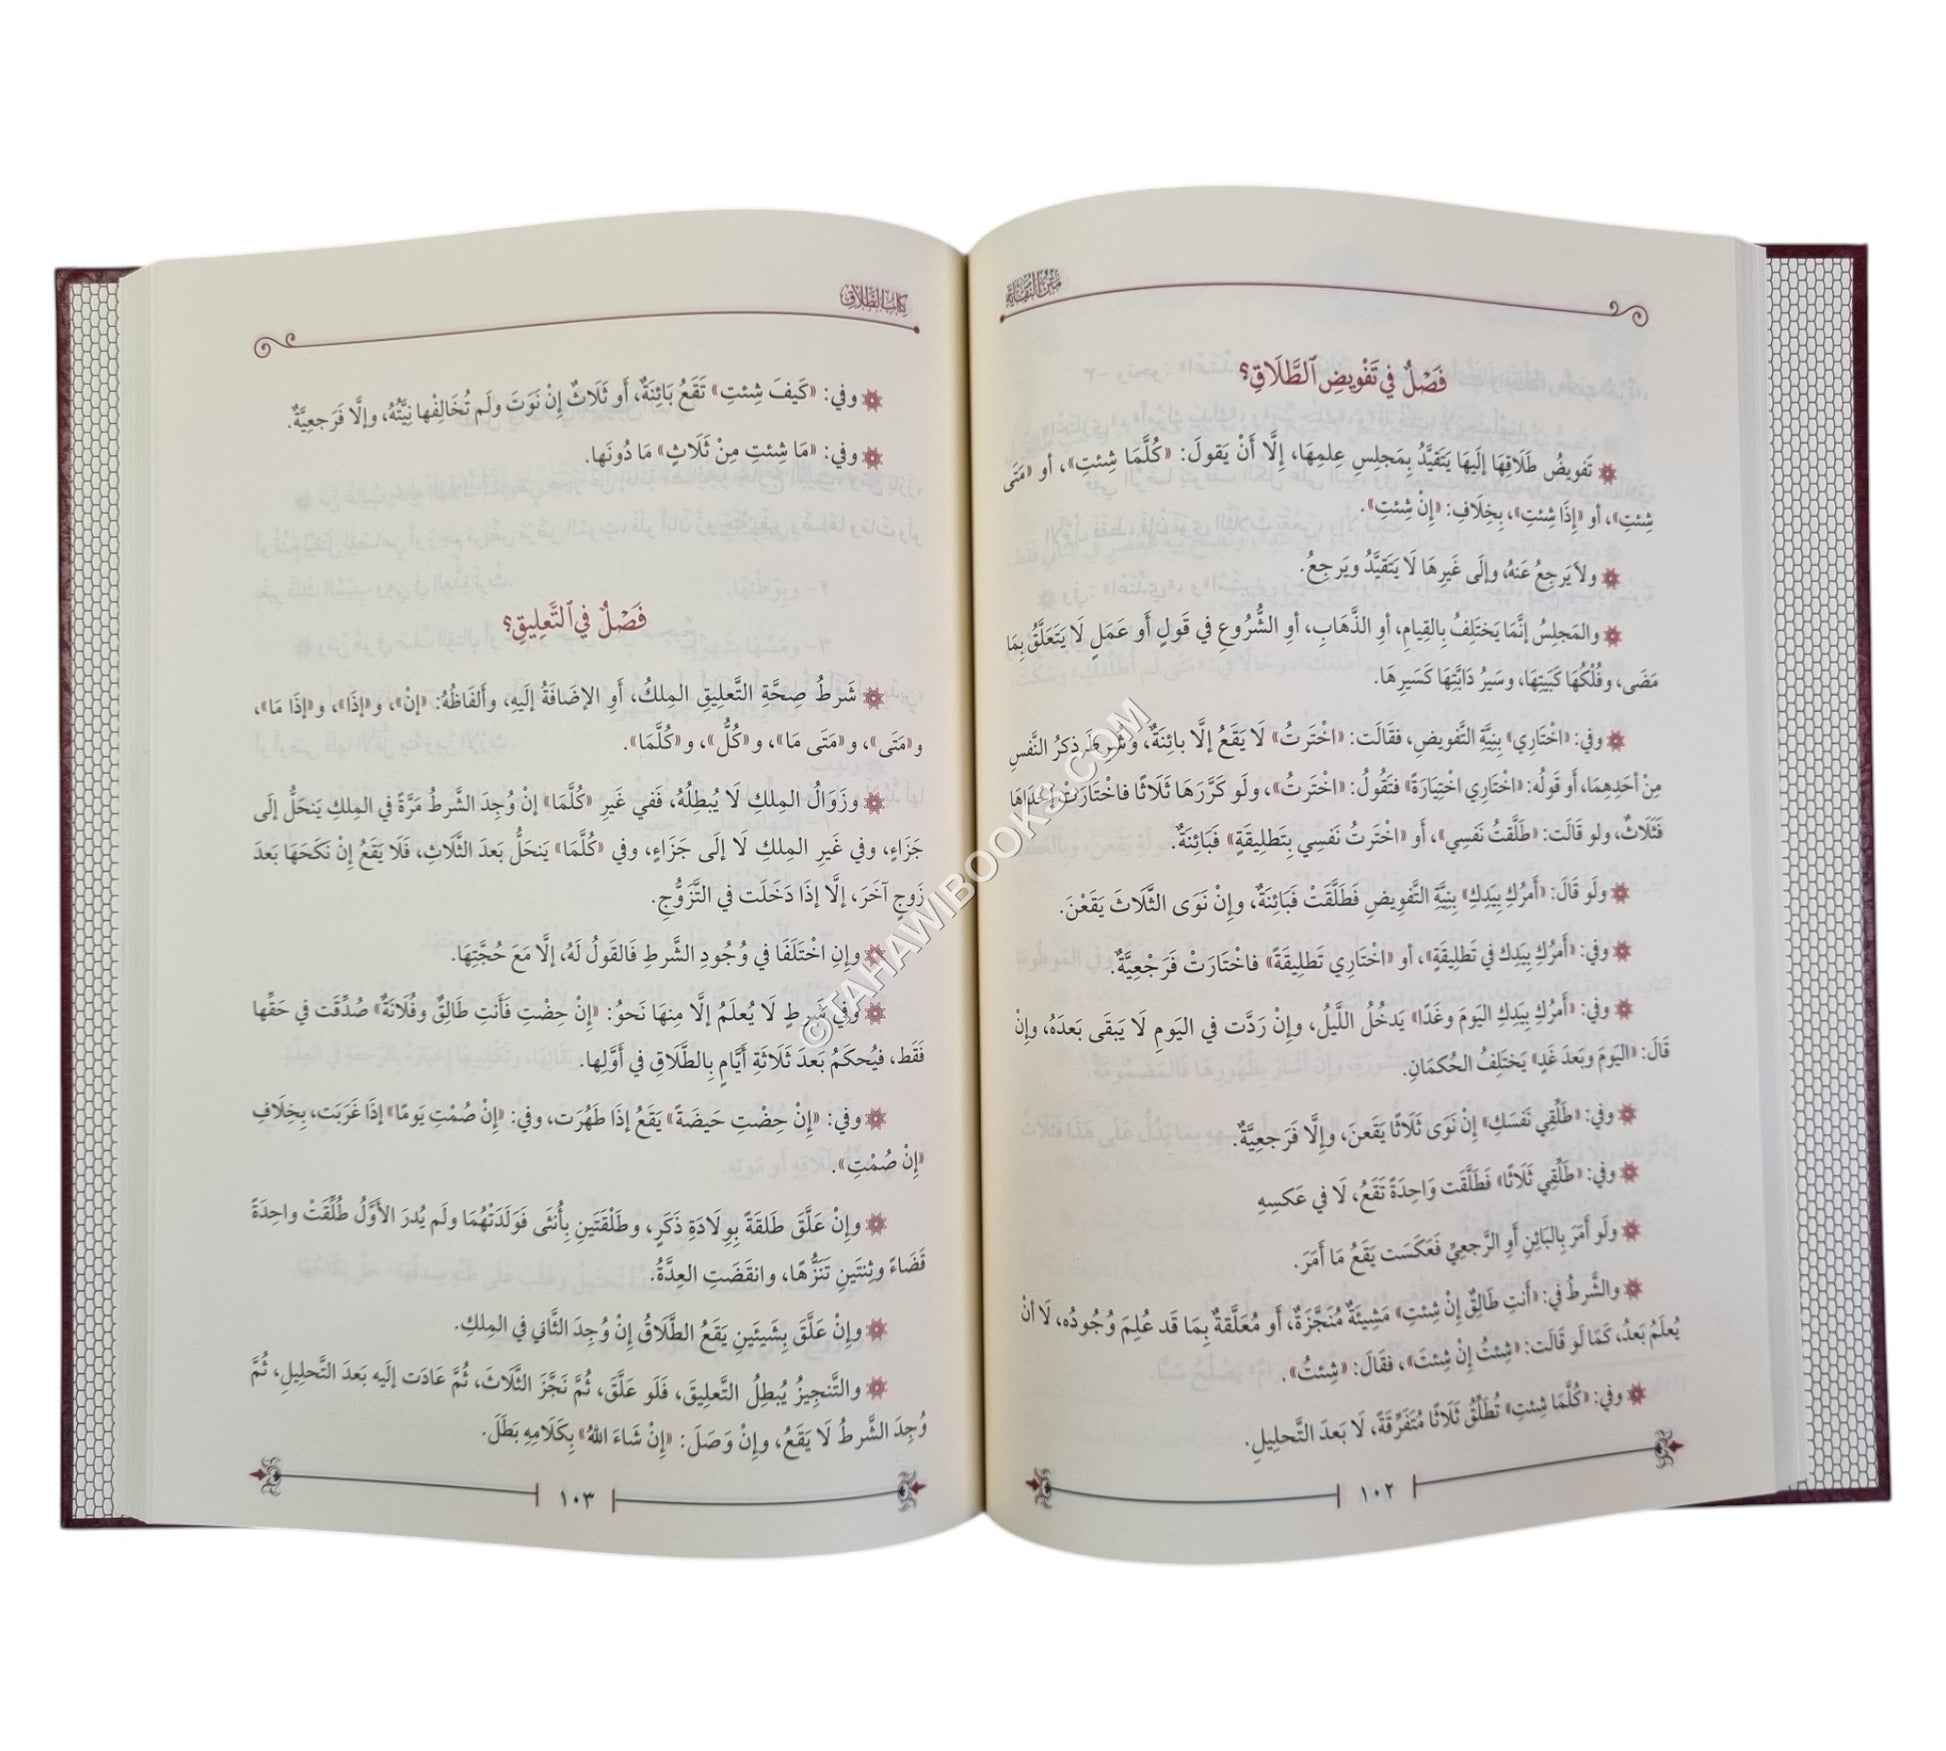 متن النقاية
فَصْلٌ في تَفْوِيضِ ٱلطَّلَاقِ؟
تَفوِيضُ طَلَاقِهَا إلَيهَا يَتَقيَّدُ بِمَجلِسِ عِلمِهَا، إلَّا أَنْ يَقولَ: «كُلَّمَا شِئتِ»، أو «مَتَى
شِئتِ»، أو «إِذَا شِئتِ»، بِخِلَافِ: «إنْ شِئتِ».
ولاَ يَرجِعُ عَنهُ، وإلَى غَيرِهَا لَا يَتَقيَّدُ ويَرجِعُ.
والمَجلِسُ إنَّمَا يَختَلِفُ بِالقِيامِ، أوِ الذَّهَابِ، أوِ الشُّرُوعِ في قَولٍ أَو عَمَلٍ لَا يَتَعَلَّقُ بِمَا
مَضَى، وفُلْكُهَا كَبَيتِهَا، وسَيرُ دَابَّتِهَا كَسَيرِهَا.
وفي: «اخْتَارِي» بِنِيَّةِ التَّفويضِ، فقَالَت: «اخْتَرتُ» لَا يَقَعُ إلَّا بائِنَةٌ، وشُرِطَ ذِكرُ النَّفسِ
مِنْ أحَدِهِمَا، أَو قَولُه: «اخْتَارِي اخْتِيَارَةً» فتَقُولُ: «اخْتَرتُ»، ولَو كَرَّرَهَا ثَلَاثًا فاخْتَارَتْ إحْدَاهَا
فَثَلَاثٌ، ولو قَالَت: «طَلَّقتُ نَفسِي»، أَو «اخْتَرتُ نَفسِي بِتَطلِيقَةٍ» فَبَائِنَةٌ.
ولَو قَالَ: «أَمرُكِ بِيَدِكِ» بِنِيَّةِ التَّفوِيضِ فَطَلَّقَتْ فَبَائِنَةٌ، وإنْ نَوَى الثَّلَاثَ يَقَعْنَ.
وفي: «أَمرُكِ بِيَدِك في تَطلِيقَةٍ»، أو «اخْتَارِي تَطلِيقَةً» فاخْتَارَتْ فَرَجْعِيَّةٌ.
وفي: «أَمرُكِ بِيَدِكِ اليَومَ وغَدًا» يَدخُلُ اللَّيلُ، وإنْ رَدَّت في اليَومِ لَا يَبقَى بَعدَهُ، وإنْ
قَالَ: «اليَومَ وبَعدَ غَدٍ» يَختَلِفُ الحُكمَانِ.
وفي: «طَلِّقِي نَفسَكِ» إنْ نَوَى ثَلَاثًا يَقَعنَ، وإلَّا فَرَجعِيَّةٌ.
وفي: «طَلِّقِي ثَلَاثًا» فَطَلَّقَت وَاحِدَةً تَقَعُ، لَا في عَكسِهِ
ولَو أَمَرَ بِالبَائِنِ أَوِ الرَّجعِيِّ فَعَكَسَت يَقَعُ مَا أَمَرَ.
والشَّرطُ في: «أَنتِ طَالِقٌ إنْ شِئتِ» مَشِيئَةٌ مُنَجَّزَةٌ، أَو مُعَلَّقةٌ بِمَا قَد عُلِمَ وُجُودُه، لَا أنْ
يُعلَمُ بَعدُ، كَمَا لَو قَالَت: «شِئتُ إنْ شِئتَ»، فقَالَ: «شِئتُ».
وفي: «كُلَّمَا شِئتِ» تُطَلِّقُ ثَلَاثًا مُتَفَرِّقَةً، لَا بَعدَ التَّحلِيلِ.
١٠٢
كتاب الطلاق
وفي: «كَيفَ شِئتِ» تَقَعُ بَائِنَةٌ، أَو ثَلَاثٌ إنْ نَوَتَ ولَم تُخَالِفْها نِيَّتُهُ، وإلَّا فَرَجعِيَّةٌ.
وفي: «مَا شِئتِ مِنْ ثَلَاثٍ» مَا دُونَها.
فَصْلٌ في ٱلتَّعلِيقِ؟
شَرطُ صِحَّةِ التَّعلِيقِ المِلكُ، أَوِ الإضَافَةُ إلَيهِ، وأَلفَاظُهُ: «إنْ»، و«إذَا»، و«إذَا مَا»،
و«مَتَى»، و«مَتَى مَا»، و«كُلُّ»، و«كُلَّمَا».
وزَوَالُ المِلكِ لَا يُبطِلُهُ، فَفي غَيرِ «كُلَّمَا» إنْ وُجِدَ الشَّرطُ مَرَّةً في المِلكِ يَنحَلُّ إلَى
جَزَاءٍ، وفي غَيرِ المِلكِ لَا إلَى جَزَاءٍ، وفي «كُلَّمَا» يَنحَلُّ بَعدَ الثَّلَاثِ، فَلَا يَقَعُ إنْ نَكَحَهَا بَعدَ
زَوجٍ آخَرَ، إلَّا إذَا دَخَلَت في التَّزَوُّجِ.
وإِنِ اخْتَلَفَا في وُجُودِ الشَّرطِ فَالقَولُ لَهُ، إلَّا مَعَ حُجَّتِهَا.
وفي شَرطٍ لَا يُعلَمُ إلَّا مِنهَا نَحوُ: «إِنْ حِضْتِ فَأَنتِ طَالِقٌ وفُلَانَةٌ» صُدِّقَت في حَقِّها
فَقَط، فيُحكَمُ بَعدَ ثَلَاثَةِ أَيَّامٍ بِالطَّلَاقِ في أَوَّلِها.
وفي: «إِنْ حِضْتِ حَيضَةً» يَقَعُ إذَا طَهُرَت، وفي: «إِنْ صُمْتِ يَومًا» إذَا غَرَبَت، بِخِلَافِ
«إِنْ صُمْتِ».
وإِنْ عَلَّقَ طَلقَةً بِوِلَادَةِ ذَكَرٍ، وطَلْقَتَينِ بِأُنثَى فَوَلَدَتْهُمَا ولَم يُدرَ الأَوَّلُ طُلِّقَتْ واحِدَةً
قَضَاءً وثِنتَينِ تَنَزُّهًا، وانقَضَتِ العِدَّةُ.
وإِنْ عَلَّقَ بِشَيئَينِ يَقَعُ الطَّلَاقُ إِنْ وُجِدَ الثَّاني في المِلكِ.
والتَّنجِيزُ يُبطِلُ التَّعلِيقَ، فَلَو عَلَّقَ، ثُمَّ نَجَّزَ الثَّلَاثَ، ثُمَّ عَادَت إلَيه بَعدَ التَّحلِيلِ، ثُمَّ
وُجِدَ الشَّرطُ لَا يَقَعُ، وإِنْ وَصَلَ: «إِنْ شَاءَ اللهُ» بِكَلَامِهِ بَطَلَ.
١٠٣
©TAHAWIBOOKS.COM